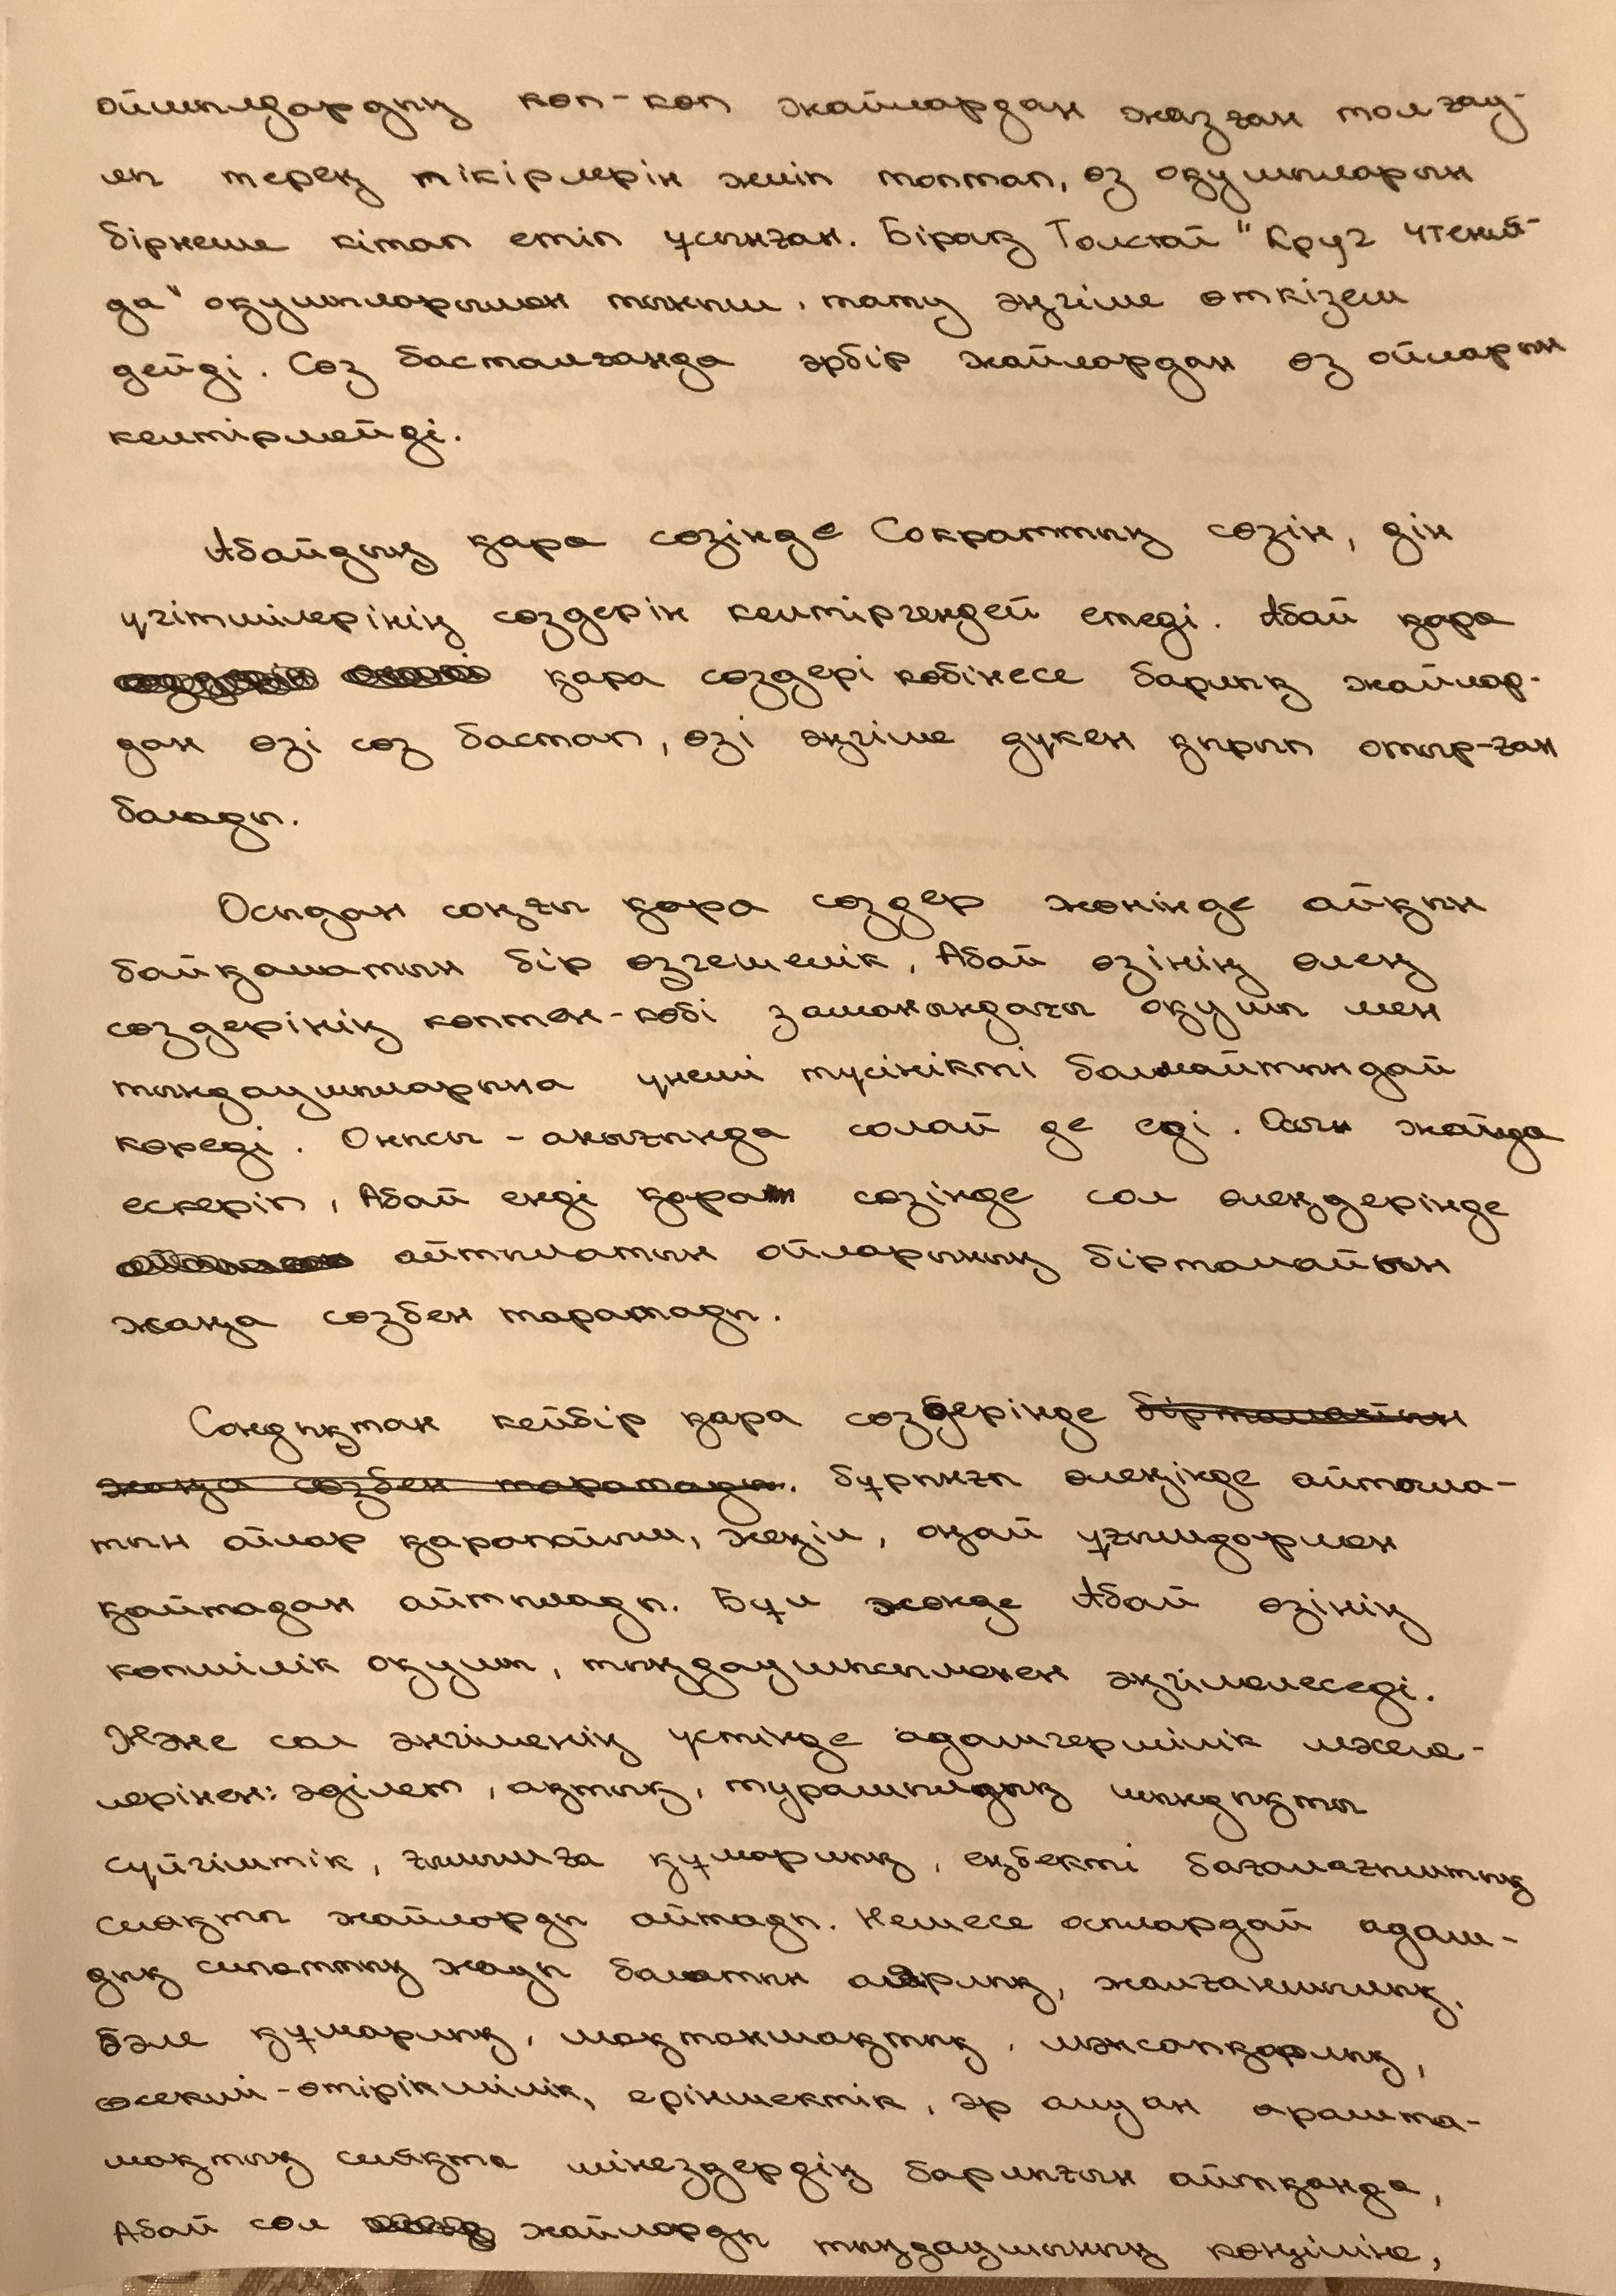 ойшылдардың көп-көп жайлардан жазған толғау-
лы терең пікірлерін жиіп топтап, өз оқушыларын
бірнеше кітап етіп ұсынған. Бірақ Толстой "Круг чтений-
да" оқушыларымен тыныш, тату әңгіме өткізем
дейді. Сөз басталғанда әрбір жайлардан өз ойларын
келтірмейді.
Абайдың қара сөзінде Сократтың сөзін, дін
үгітшілерінің сөздерін келтіргендей етеді. Абай қара
қара сөздері көбінесе барлық жайлар-
дан өзі сөз бастап, өзі әңгіме дүкен құрып отыр-ған
болады.
Осыдан соңғы қара сөздер жөнінде айқын
байқалатын бір өзгешелік, Абай өзінің өлең
сөздерінің көптен-көбі заманындағы оқушы мен
тыңдаушыларына үнемі түсінікті болмайтындай
көреді. Онысы - анығында солай де еді. Осы жайда
ескеріп, Абай енді қара сөзінде сол өлеңдерінде
айтылатын ойларының бірталайын
жаңа сөзбен таратады.
Сондықтан кейбір қара сөздерінде бірталайын
жаңа сөзбен таратады. бұрынғы өлеңінде айтыла-
тын ойлар қарапайым, жеңіл, оңай ұғымдармен
қайтадан айтылады. Бұл жөнде Абай өзінің
көпшілік оқушы, тыңдаушысыменен әңгімелеседі.
Және сол әнгіменің үстінде адамгершілік мәселе-
лерінен: әділет, ақтық, турашылдық шындықты
сүйгіштік, ғылымға құмарлық, еңбекті бағалағыштық
сияқты жайларды айтады. Немесе осылардай адам-
дық сипаттың жауы болатын алярлық, жалғаншылық,
бәле құмарлық, мақтаншақтық, мансапқорлық,
өсекші-өтірікшілік, еріншектік, әр алуан арамта-
мақтық сияқта мінездердің барлығын айтқанда,
Абай сол жайларды тыңдаушының көңіліне,